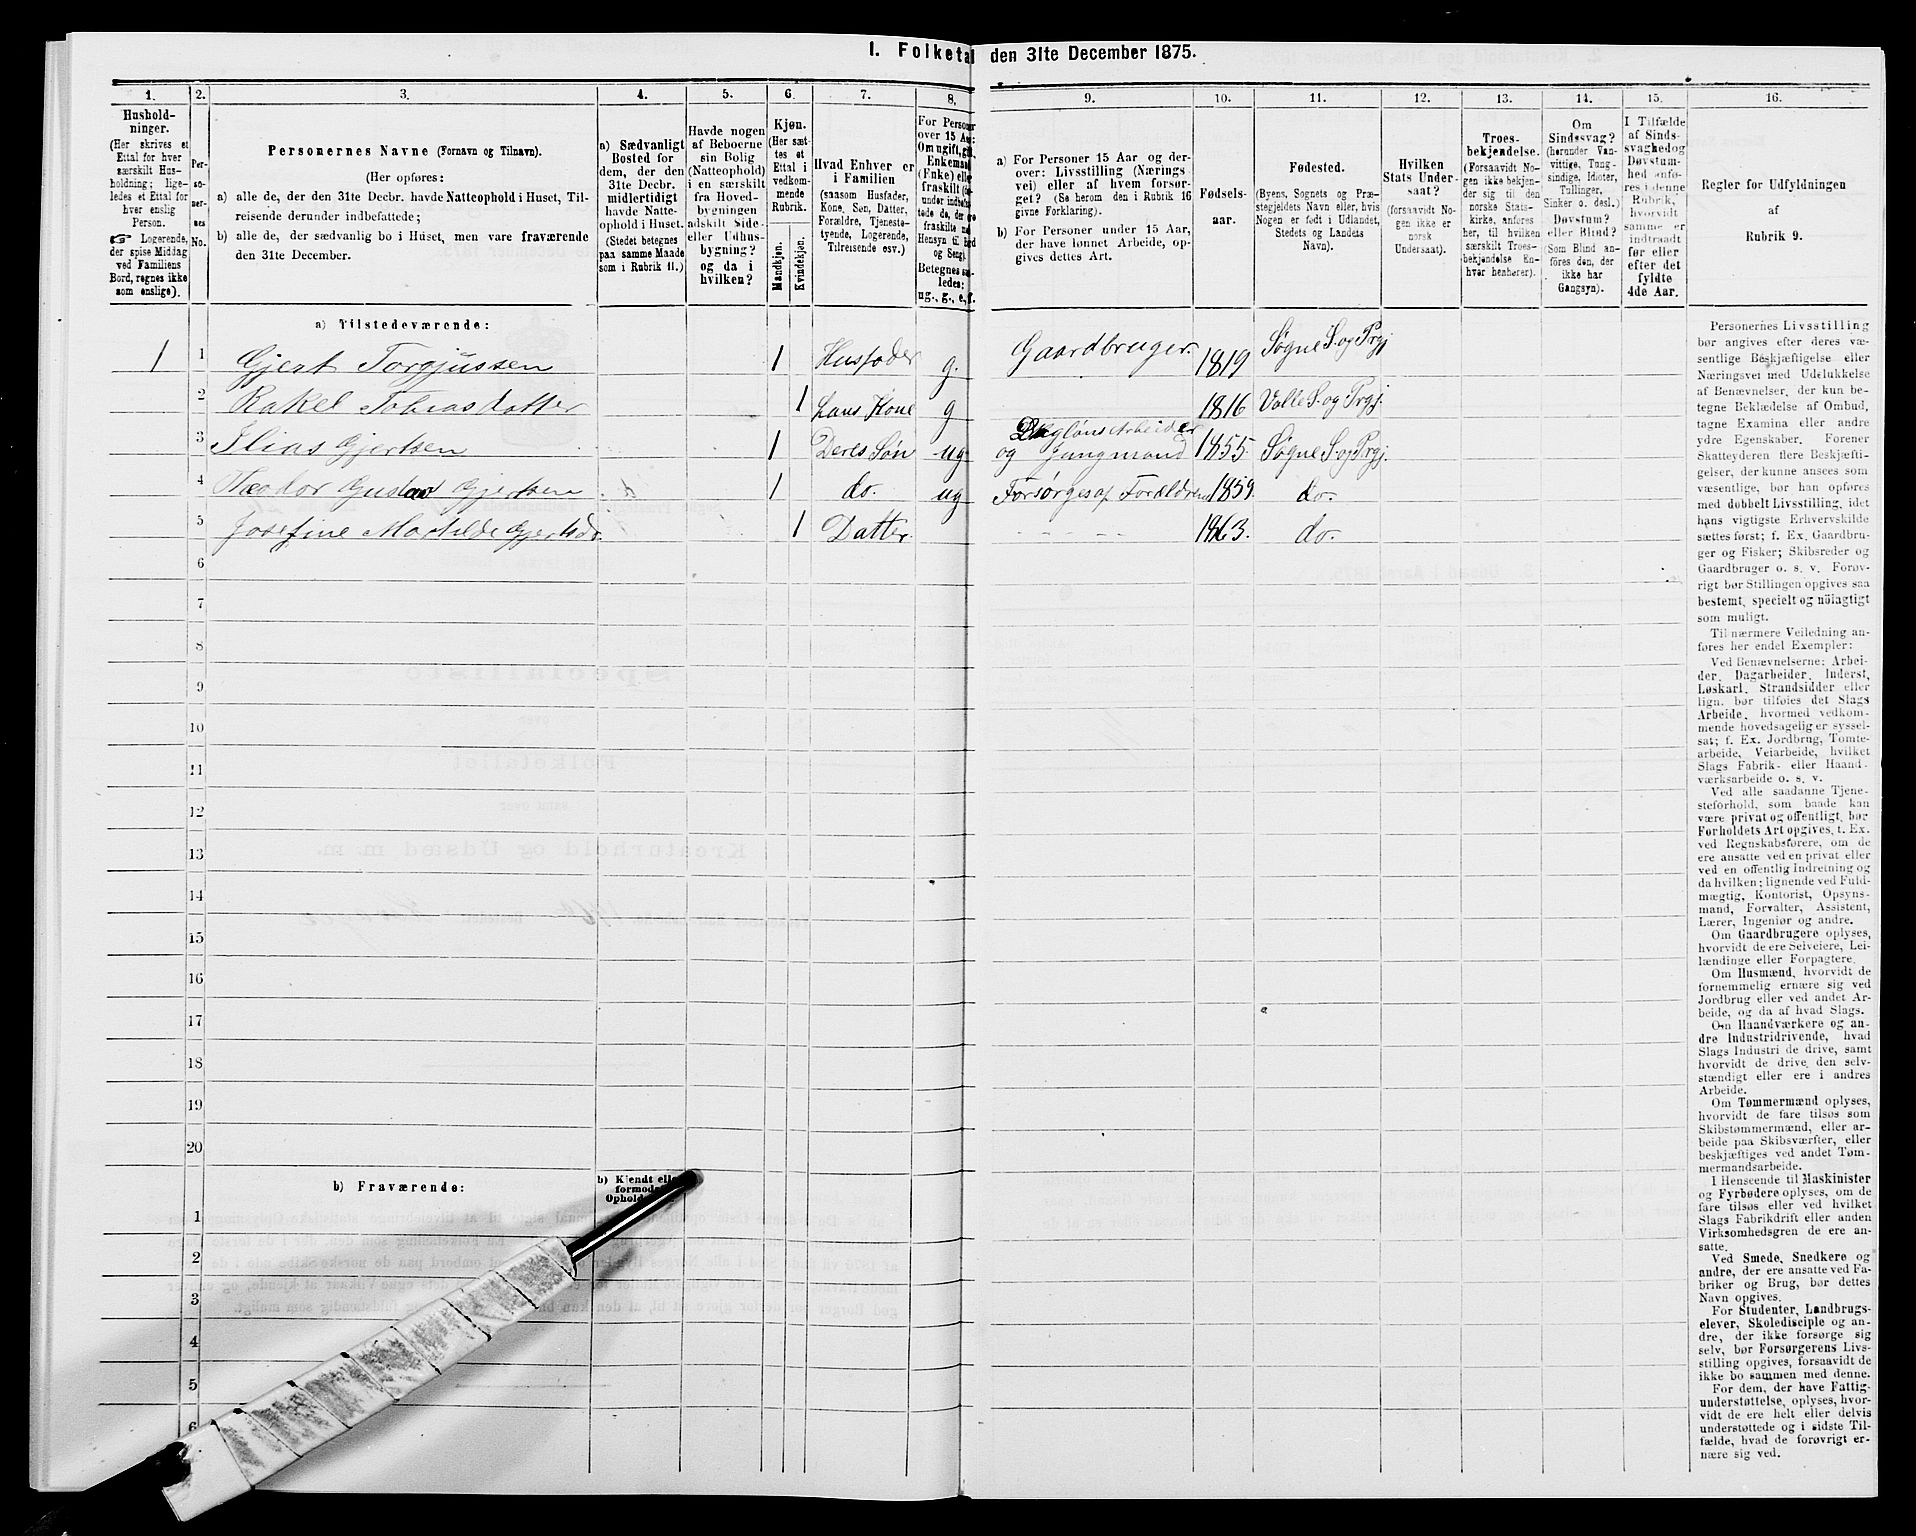 1. Folketal den 31te December 1875.
1.
2.
3.
4.
5.
6.
7.
8.
9.
10.
11.
12.
13.
14.
15.
16.
Hushold-
ninger.
(Her skrives et
Ettal for hver
særskilt Hus-
holdning; lige-
ledes et Ettal for
hver enslig
Person.
☞ Logerende,
der spise Middag
ved Familiens
Bord, regnes ikke
som enslige).
Per-
so-
ner-
nes
No.
Personernes Navne (Fornavn og Tilnavn).
(Her opføres:
a) alle de, der den 31te Decbr. havde Natteophold i Huset, Til-
reisende derunder indbefattede;
b) alle de, der sædvanlig bo i Huset, men vare fraværende
den 31te December.
a) Sædvanligt
Bosted for
dem, der den
31te Decbr.
midlertidigt
havde Natte-
ophold i Huset.
(Stedet betegnes
paa samme Maade
som i Rubrik 11.)
Havde nogen
af Beboerne
sin Bolig
(Natteophold)
i en særskilt
fra Hoved-
bygningen
adskilt Side-
eller Udhus-
bygning?
og da i
hvilken?
Kjøn.
(Her sæt-
tes et
Ettal i
vedkom-
mende
Rubrik.
Mandkjøn.
Kvindekjøn.
Hvad Enhver er
i Familien
(saasom Husfader,
Kone, Søn, Datter,
Forældre, Tjeneste-
tyende, Logerende,
Tilreisende osv.)
For Personer
over 15 Aar:
Om ugift, gift,
Enkemand
(Enke) eller
fraskilt
Hensyn til Bord
og Seng).
Betegnes saa-
ledes:
ug., g., e., f.
a) For Personer 15 Aar og der-
over: Livsstilling (Nærings
vei) eller af hvem forsør-
get? (Se herom den i Rubrik 16
givne Forklaring).
b) For Personer under 15 Aar,
der have lønnet Arbeide, op-
gives dettes Art.
Fødsels-
aar.
Fødested.
(Byens, Sognets og Præ-
stegjeldets Navn eller, hvis
Nogen er født i Udlandet,
Stedets og Landets
Navn).
Hvilken
Stats Under-
saat?
(forsaavidt No-
gen ikke er
norsk
Undersaat).
Troes-
bekjendelse.
(Forsaavidt No-
gen ikke bekjen-
der sig til den
norske Stats-
kirke, anføres
her, til hvilken
særskilt Troes-
bekjendelse En-
hver henhører).
Om
Sindssvag?
(herunder Van-
vittige, Tung-
sindige, Idioter,
Tullinger,
Sinker o. desl.)
Døvstum?
eller Blind?
(Som Blind an-
føres den, der
ikke har
Gangsyn).
I Tilfælde
af Sinds-
svaghed og
Døvstum-
hed anfø-
res i denne
Rubrik,
hvorvidt
samme er
indtraadt
før eller
efter det
fyldte
4de Aar.
Regler for Udfyldningen
af
Rubrik 9.
a) Tilstedeværende:
1 1 Gjert Torgjussen 1 Husfader g. Gaardbruger. 1819 Søgne S. og Prgj
2 Rakel Tobiasdatter 1 hans Kone g 1816 Valle S. og Prgj.
3 Elias Gjertsen 1 Deres Søn ug Dagløns Arbeider
og Jungmand 1855. Søgne S. og Prgj.
4 Theodor Gustav Gjertsen 1 do. ug Forsørges af Forældrene 1859. do.
5 Josefine Mathilde Gjertsdr 1 Datter. - - - - - 1863. do.
6
7
8
9
10
11
12
13
14
15
16
17
18
19
20
b) Fraværende:
b) Kjendt eller
formodet
Ophold
1
2
3
4
5
6
Personernes Livsstilling
bør angives efter deres væ-
sentlige Beskjæftigelse eller
Næringsvei med Udelukkelse
af Benævnelser, der kun be-
tegne Beklædelse af Ombud,
tagne Examina eller andre
ydre Egenskaber. Forener
Skatteyderen flere Beskjæfti-
gelser, der kunne ansees som
væsentlige, bør han opføres
med dobbelt Livsstilling, idet
hans vigtigste Erhvervskilde
sættes først; f. Ex. Gaardbru-
ger og Fisker; Skibsreder og
Gaardbruger o. s. v. Forøv-
rigt bør Stillingen opgives saa
bestemt, specielt og nöiagtigt
som muligt.
Til nærmere Veiledning an-
føres her endel Exempler:
Ved Benævnelserne: Arbei-
der, Dagarbeider, Inderst,
Løskarl, Strandsidder eller
lign. bør tilføies det Slags
Arbeide, hvormed vedkom-
mende hovedsagelig er syssel-
sat; f. Ex. Jordbrug, Tomte-
arbeide, Veiarbeide, hvilket
Slags Fabrik- eller Haand-
værksarbeide o. s. v.
Ved alle saadanne Tjene-
steforhold, som baade kan
være privat og offentligt, bør
Forholdets Art opgives, t. Ex.
ved Regnskabsførere, om de
ere ansatte ved en privat eller
ved en offentlig Indretning og
da hvilken; lignende ved Fuld-
mægtig, Kontorist, Opsyns-
mand, Forvalter, Assistent,
Lærer, Ingeniør og andre.
Om Gaardbrugere oplyses,
hvorvidt de ere Selveiere, Lei-
lændinge eller Forpagtere.
Om Husmænd, hvorvidt de
fornemmelig ernære sig ved
Jordbrug eller ved andet Ar-
beide, og da af hvad Slags.
Om Haandværkere og an-
dre Industridrivende, hvad
Slags Industri de drive, samt
hvorvidt de drive den selv-
stændigt eller ere i andres
Arbeide.
Om Tømmermænd oplyses,
hvorvidt de fare tilsøs som
Skibstømmermænd, eller ar-
beide paa Skibsværfter, eller
beskjæftiges ved andet Tøm-
mermandsarbeide.
I Henseende til Maskinister
og Fyrbødere oplyses, om de
fare tilsøs eller ved hvilket
Slags Fabrikdrift eller anden
Virksomhedsgren de ere an-
satte.
Ved Smede, Snedkere og
andre, der ere ansatte ved Fa-
briker og Brug, bør dettes
Navn opgives.
For Studenter, Landbrugs-
elever, Skoledisciple og an-
dre, der ikke forsørge sig
selv, bør Forsørgerens Livs-
stilling opgives, forsaavidt de
ikke bo sammen med denne.
For dem, der have Fattig-
understøttelse, oplyses, hvor-
vidt de ere helt eller delvis
understøttede og i sidste Til-
fælde, hvad de forøvrigt er-
nære sig ved.